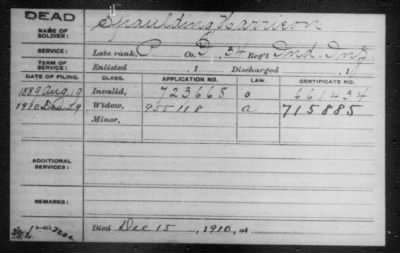 DEAD
NAME OF SOLDIER: Spaulding, Harrison
SERVICE: Late rank, P Co. D, 34 Reg't Ind. Inf
TERM OF SERVICE: Enlisted , 1 Discharged , 1
DATE OF FILING. CLASS. APPLICATION NO. LAW. CERTIFICATE NO.
1889 Aug 19 Invalid, 723668 o 661434
1910 Dec 29 Widow, 955118 a 715885
Minor,
ADDITIONAL SERVICES:
REMARKS:
Died Dec 15, 1910, at